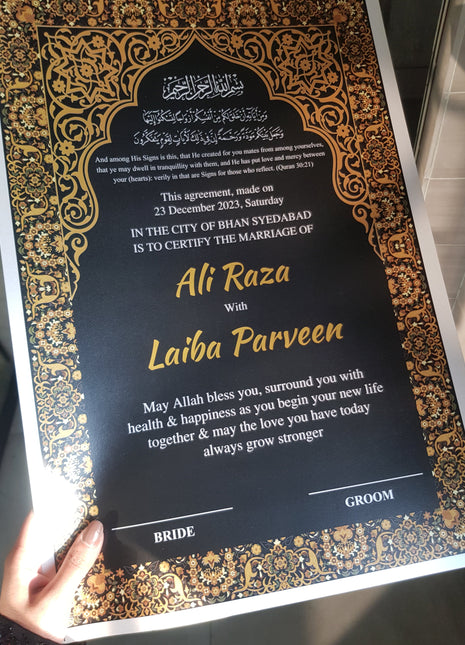 بسم الله الرحمن الرحيم
ومن آياته أن خلق لكم من أنفسكم أزواجا لتسكنوا إليها
وجعل بينكم مودة ورحمة إن في ذلك لآيات لقوم يتفكرون
And among His Signs is this, that He created for you mates from among yourselves,
that ye may dwell in tranquillity with them, and He has put love and mercy between
your (hearts): verily in that are Signs for those who reflect. (Quran 30:21)
This agreement, made on
23 December 2023, Saturday
IN THE CITY OF BHAN SYEDABAD
IS TO CERTIFY THE MARRIAGE OF
Ali Raza
With
Laiba Parveen
May Allah bless you, surround you with
health & happiness as you begin your new life
together & may the love you have today
always grow stronger
BRIDE
GROOM